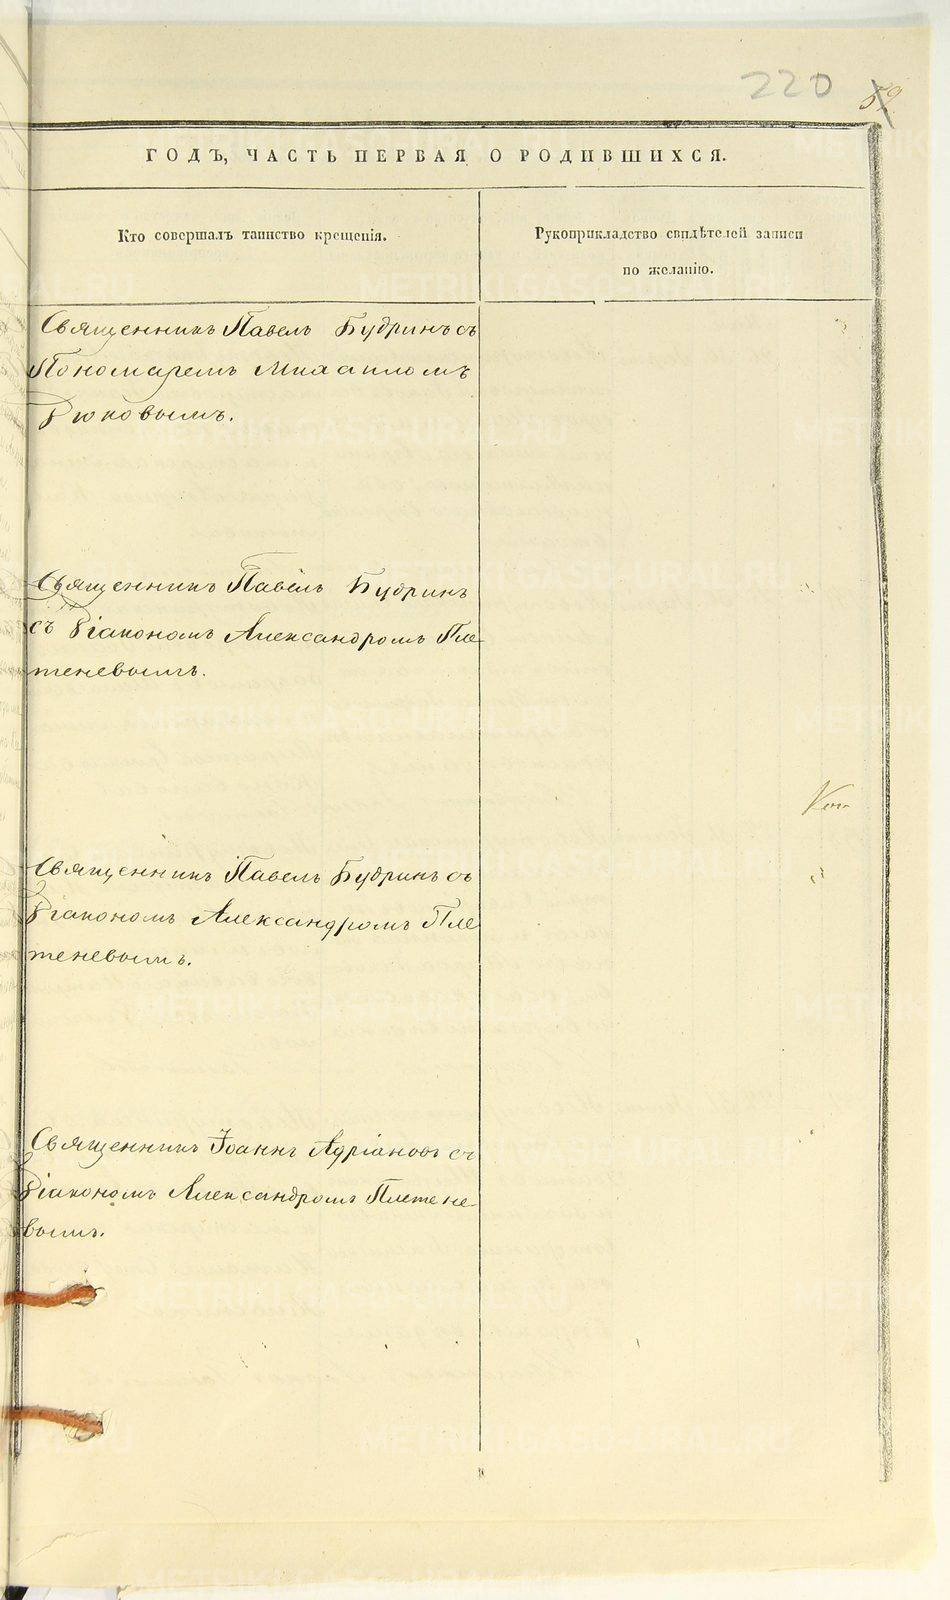 220
59
ГОДЪ, ЧАСТЬ ПЕРВАЯ О РОДИВШИХСЯ.
Кто совершалъ таинство крещенія.
Рукоприкладство свидѣтелей записи
по желанію.
Священникъ Павелъ Будринъ съ
Пономаремъ Михаиломъ
Дюковымъ.
Священникъ Павелъ Будринъ
съ Діакономъ Александромъ Пле
теневымъ.
Священникъ Павелъ Будринъ съ
Діакономъ Александромъ Пле
теневымъ.
Священникъ Іоаннъ Адріановъ съ
Діакономъ Александромъ Плетене-
вымъ.
METRIKI.GASO-URAL.RU